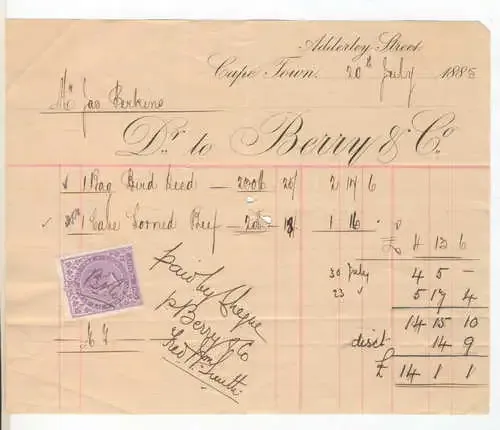 Adderley Street
Cape Town. 20th July 1885
Mr Jas Perkins
Dr. to Berry & Co.
1 Bag Bird Seed — 230lb 25/ 2 17 6
1 Case Corned Beef — 2doz 18/ 1 16 "
£ 4 13 6
30 July 4 5 -
23 " 5 17 4
14 15 10
disct 14 9
£ 14 1 1
paid by Cheque
p Berry & Co
Geo H Smith